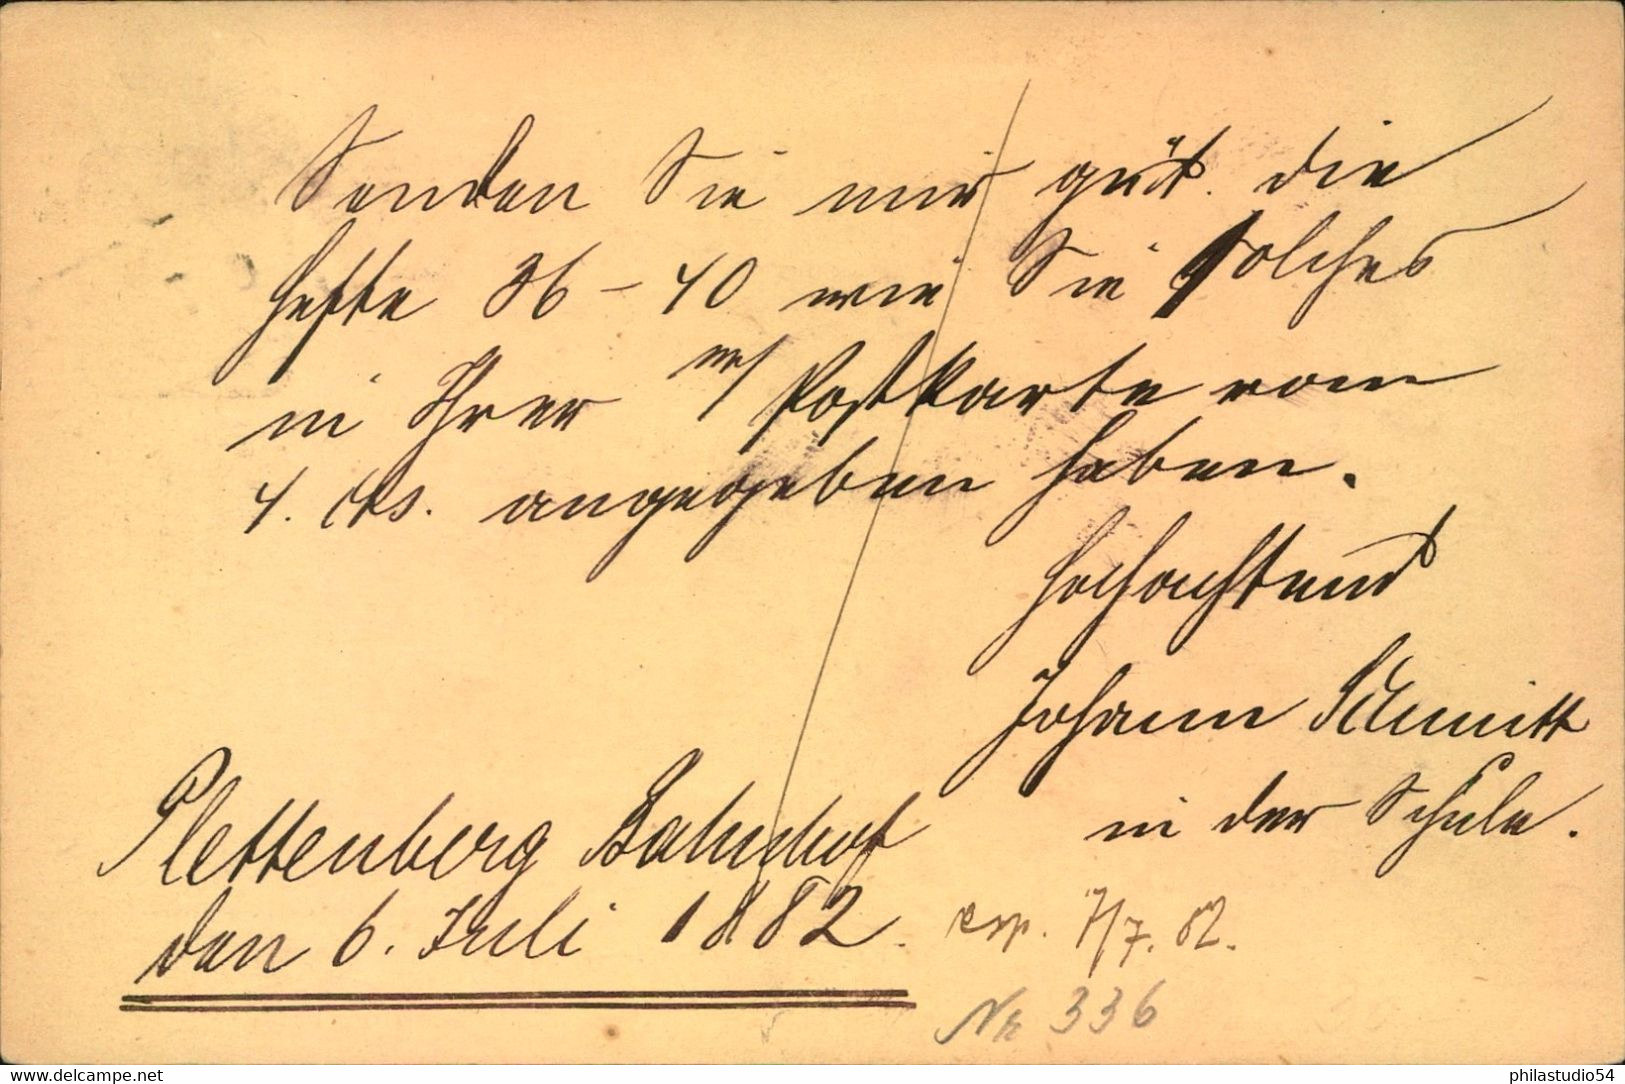 Senden Sie mir güt. die
Hefte 36 – 40 wie Sie solches
in Ihrer Postkarte vom
4. ds. angegeben haben.
Hochachtend
Johann Schmitt
in der Schule.
Plettenberg Bahnhof
den 6. Juli 1882.
exp. 7/7. 82.
No 336
www.delcampe.net
philastudio54